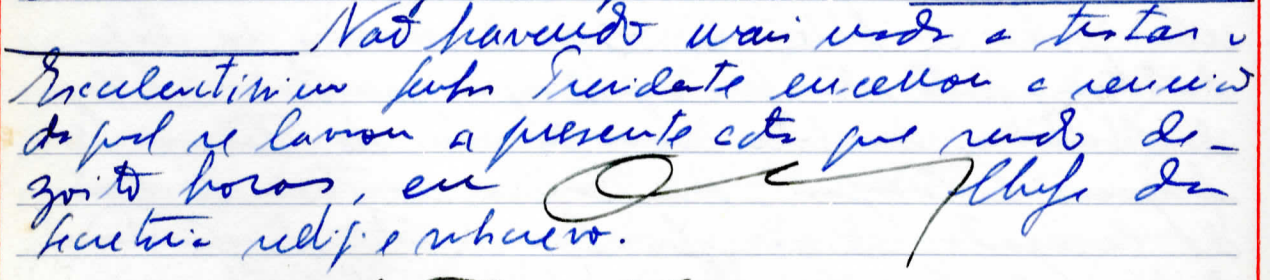 Não havendo mais nada a tratar o
Excelentíssimo Senhor Presidente encerrou a reunião
da qual se lavrou a presente acta que sendo de-
zoito horas, eu Chefe da
Secretaria redigi e subscrevo.